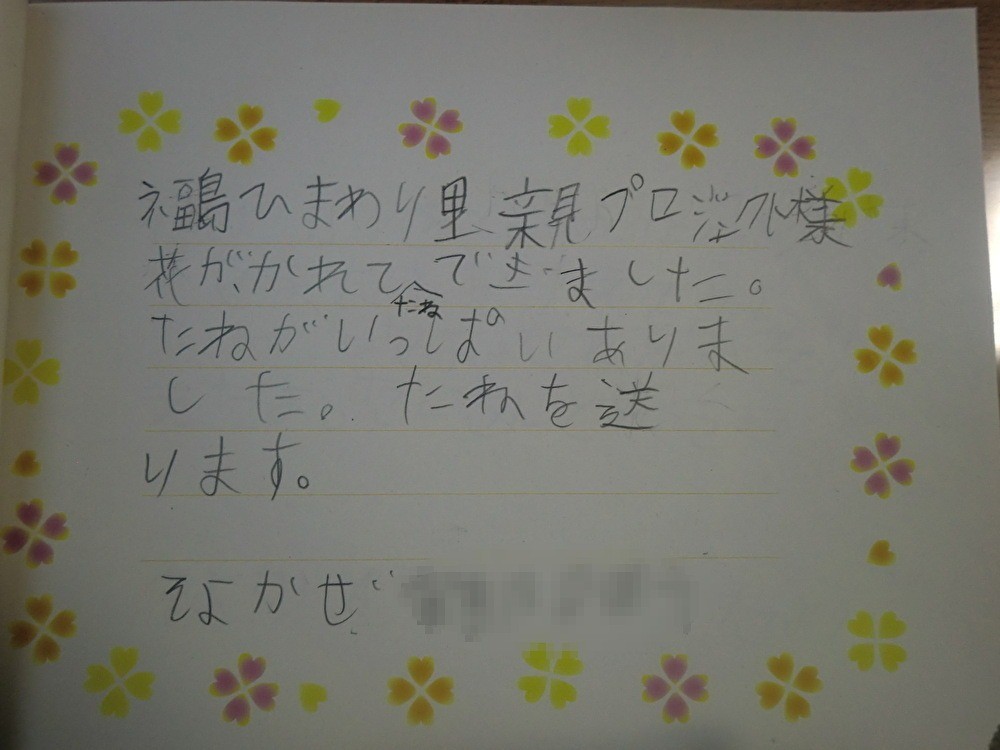 福島ひまわり里親プロジェクト様
花がかれてたねできました。
たねがいっぱいありま
した。たねを送
ります。
そよかぜ